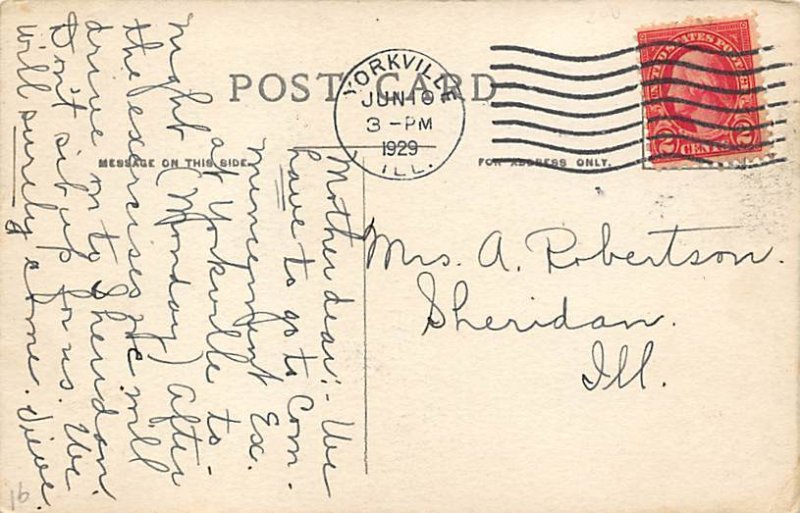 POST CARD
YORKVILLE
JUN 10
3 -PM
1929
ILL.
UNITED STATES POSTAGE
2 CENTS 2
MESSAGE ON THIS SIDE.
FOR ADDRESS ONLY.
Mother dear:- We
have to go to Com-
mencement Ex.
at Yorkville to-
night (Monday) After
the exercises we will
drive on to Sheridan.
Don't sit up for us. We
will surely come.
Mrs. A. Robertson.
Sheridan.
Ill.
16